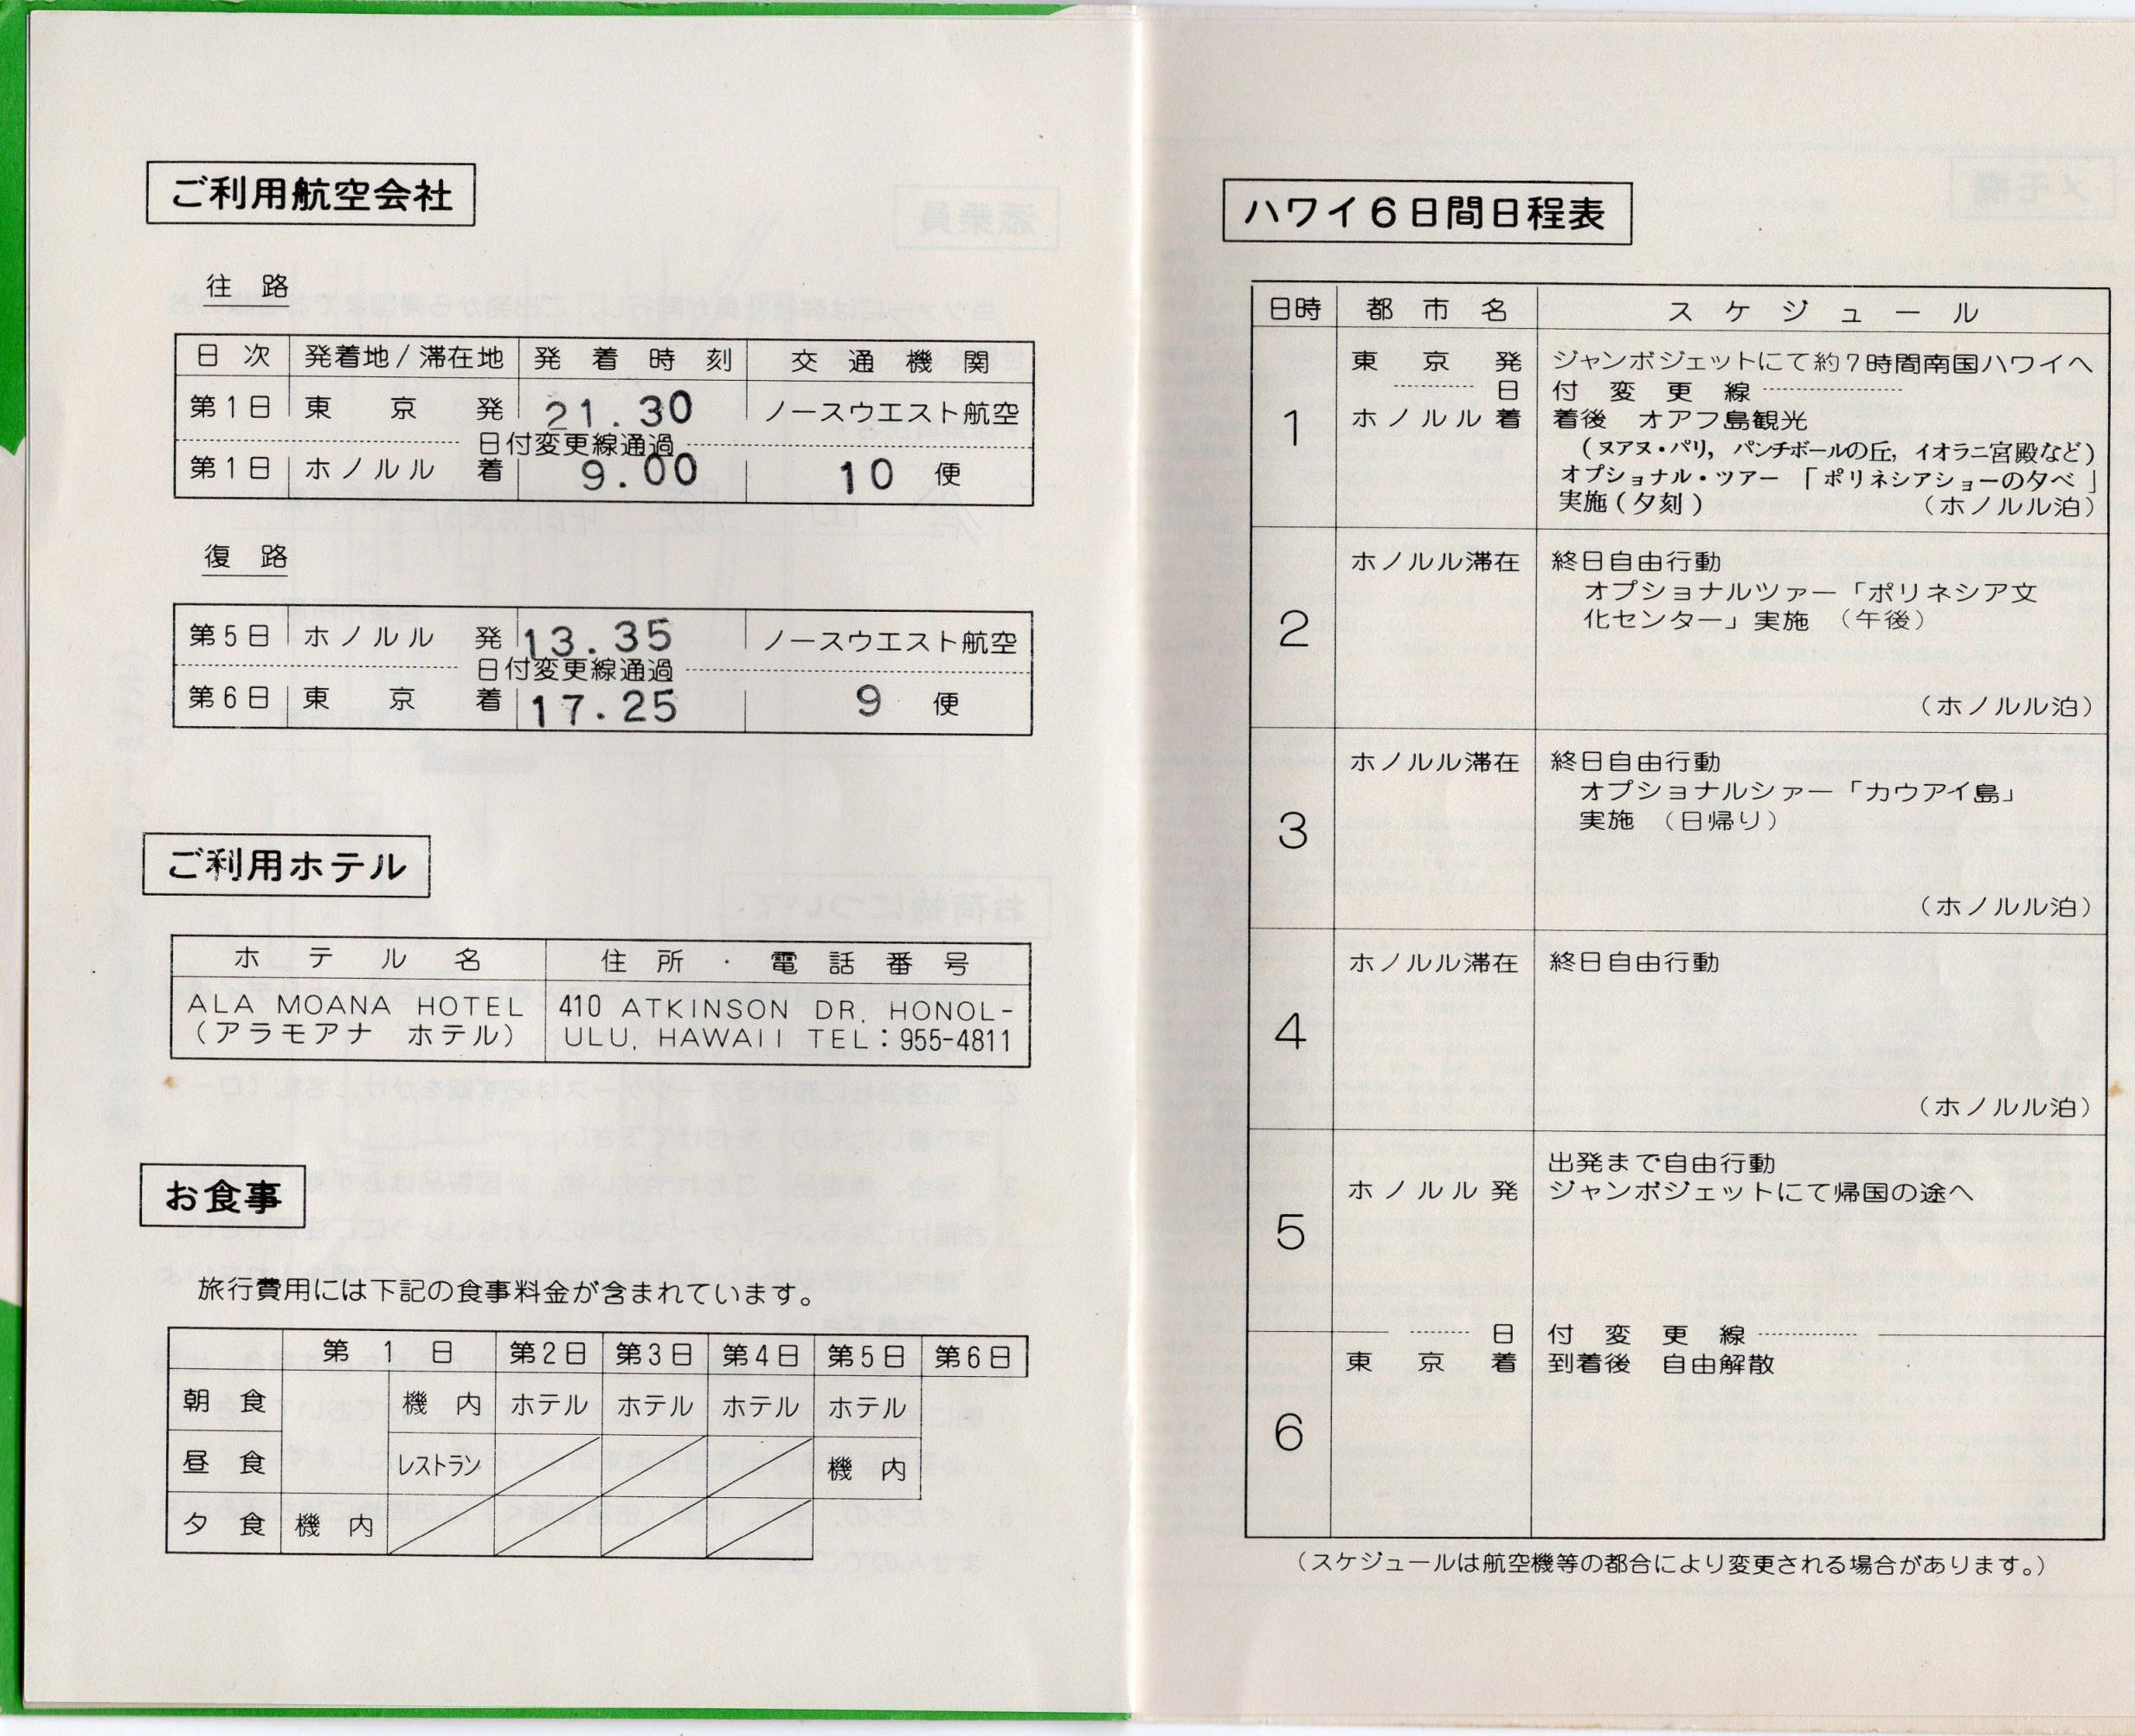 ご利用航空会社
往路
日次 発着地/滞在地 発着時刻 交通機関
第1日 東京発 21.30 ノースウエスト航空
日付変更線通過
第1日 ホノルル着 9.00 10便
復路
第5日 ホノルル発 13.35 ノースウエスト航空
日付変更線通過
第6日 東京着 17.25 9便
ご利用ホテル
ホテル名 住所・電話番号
ALA MOANA HOTEL 410 ATKINSON DR. HONOL-
(アラモアナ ホテル) ULU, HAWAII TEL:955-4811
お食事
旅行費用には下記の食事料金が含まれています。
第1日 第2日 第3日 第4日 第5日 第6日
朝食 機内 ホテル ホテル ホテル ホテル
昼食 レストラン 機内
夕食 機内
ハワイ6日間日程表
日時 都市名 スケジュール
1
東京発 ジャンボジェットにて約7時間南国ハワイへ
日付変更線
ホノルル着 着後 オアフ島観光
(ヌアヌ・パリ, パンチボールの丘, イオラニ宮殿など)
オプショナル・ツアー「ポリネシアショーの夕べ」
実施(夕刻) (ホノルル泊)
2
ホノルル滞在 終日自由行動
オプショナルツァー「ポリネシア文
化センター」実施 (午後)
(ホノルル泊)
3
ホノルル滞在 終日自由行動
オプショナルシァー「カウアイ島」
実施 (日帰り)
(ホノルル泊)
4
ホノルル滞在 終日自由行動
(ホノルル泊)
5
出発まで自由行動
ホノルル発 ジャンボジェットにて帰国の途へ
日付変更線
6
東京着 到着後 自由解散
(スケジュールは航空機等の都合により変更される場合があります。)